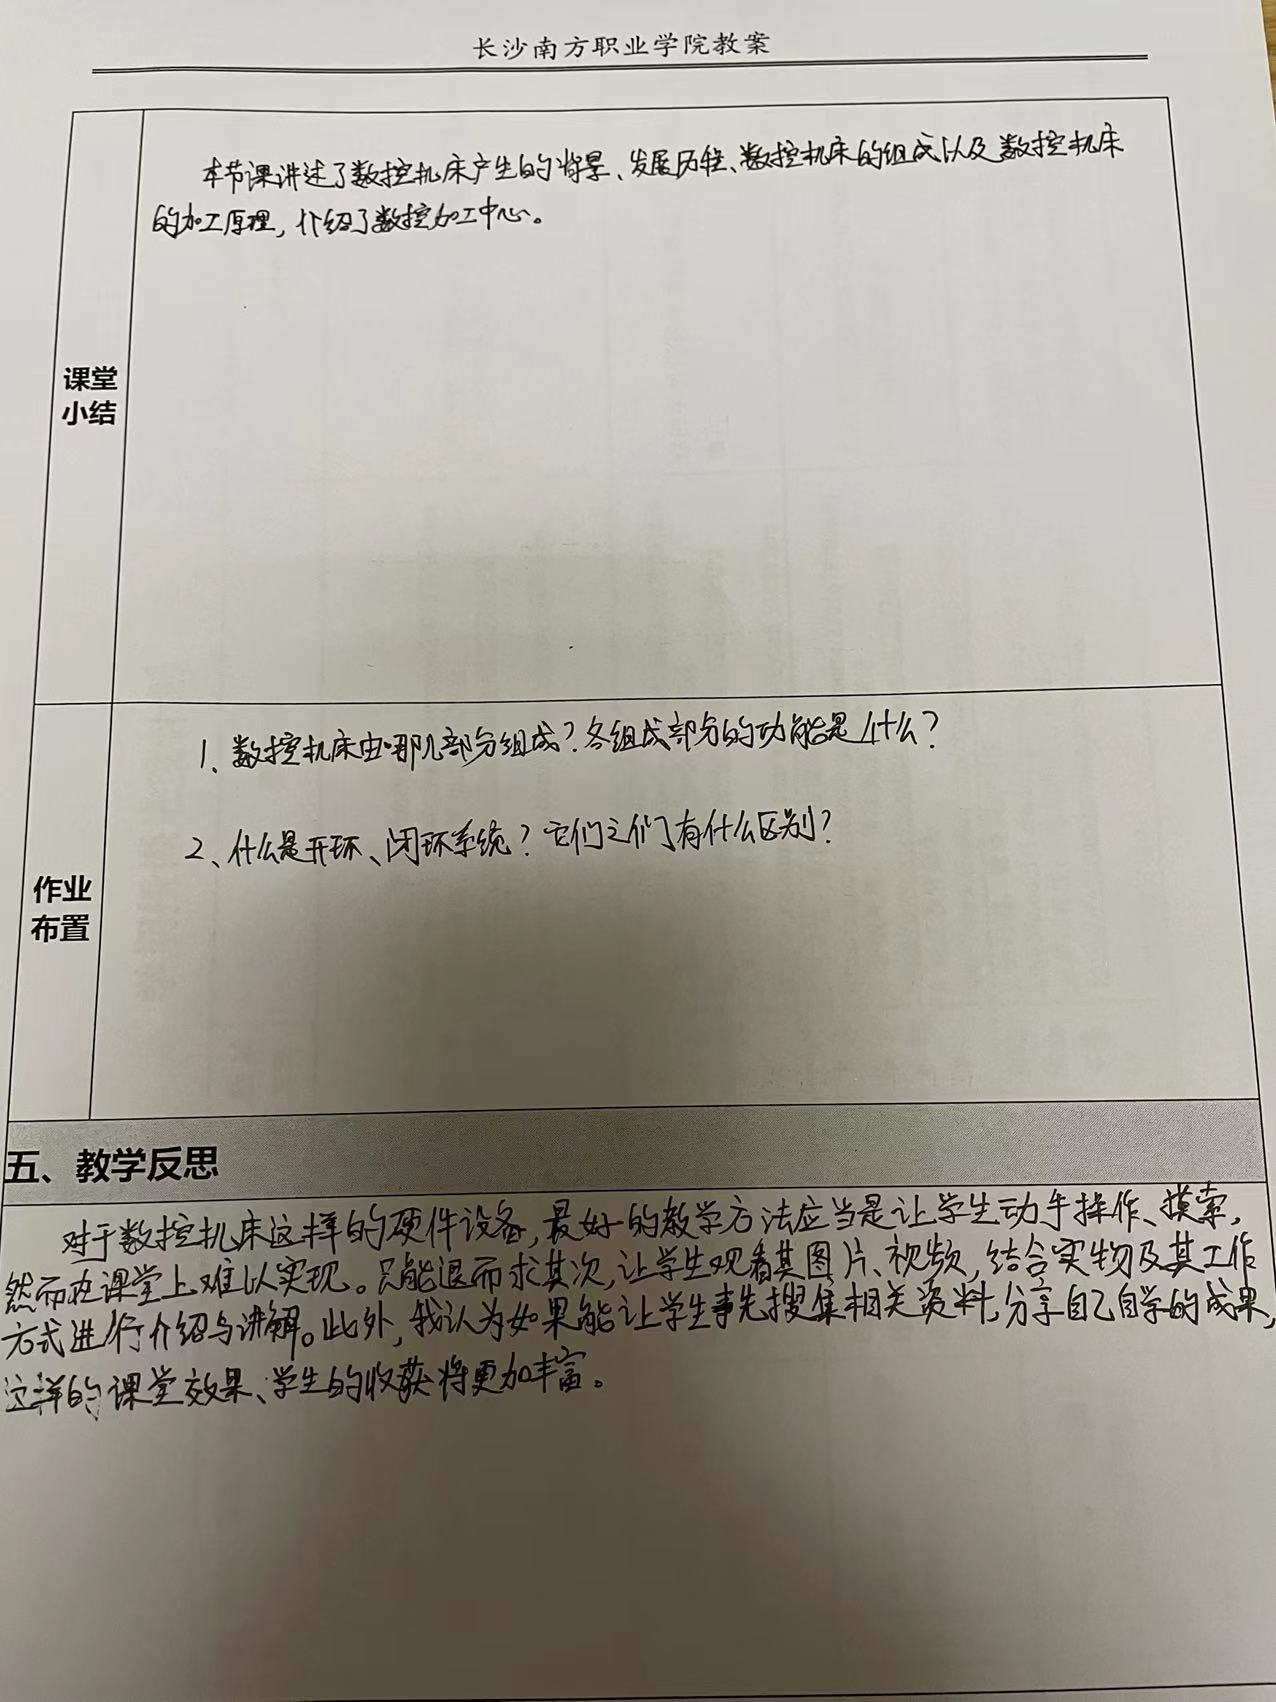 长沙南方职业学院教案
本节课讲述了数控机床产生的背景、发展历程、数控机床的组成以及数控机床
的加工原理，介绍了数控加工中心。
课堂
小结
1、数控机床由哪几部分组成？各组成部分的功能是什么？
2、什么是开环、闭环系统？它们之们有什么区别？
作业
布置
五、教学反思
对于数控机床这样的硬件设备，最好的教学方法应当是让学生动手操作、摸索，
然而在课堂上难以实现。只能退而求其次，让学生观看其图片、视频，结合实物及其工作
方式进行介绍与讲解。此外，我认为如果能让学生事先搜集相关资料，分享自己自学的成果，
这样的课堂效果、学生的收获将更加丰富。